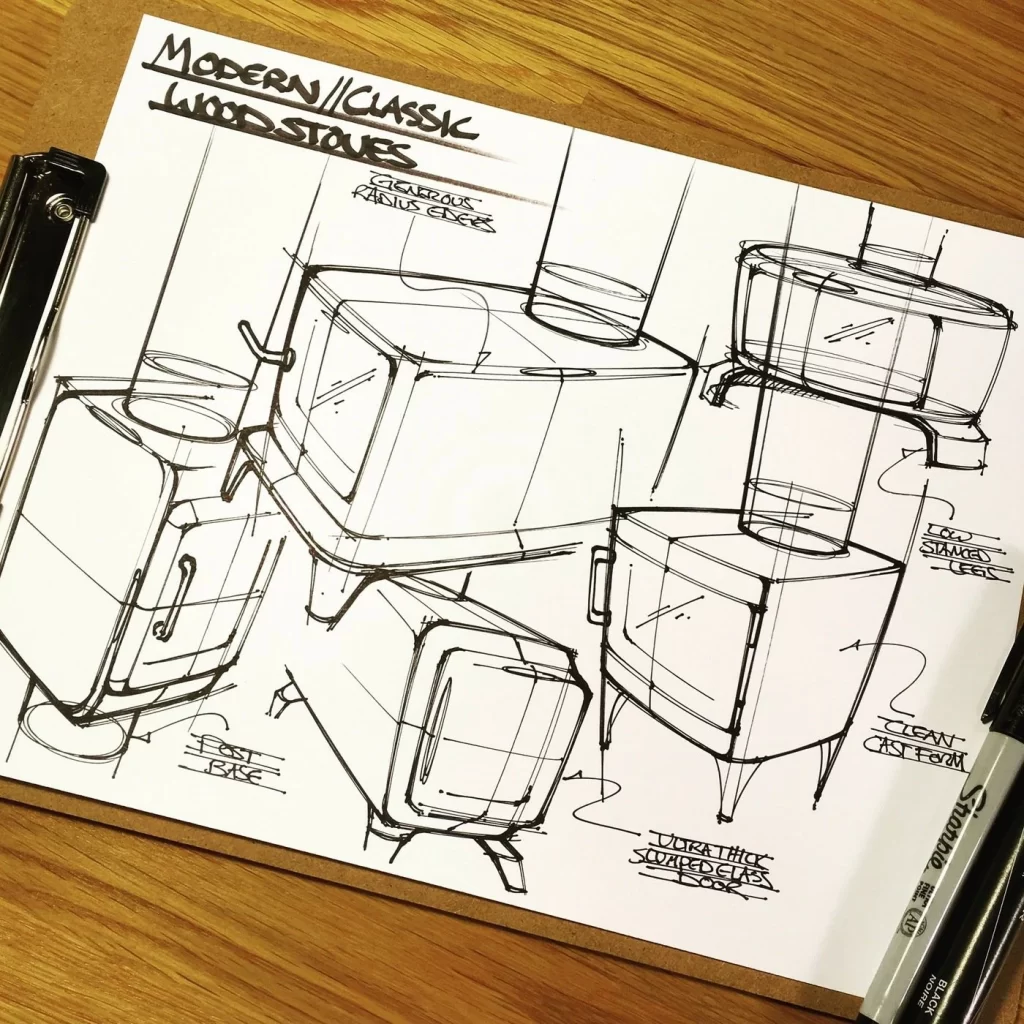 MODERN//CLASSIC
WOODSTOVES
GENEROUS
RADIUS EDGES
LOW
STANCED
LEGS
CLEAN
CAST FORM
POST
BASE
ULTRA THICK
SLUMPED GLASS
DOOR
Sharpie
FINE
POINT
AP
BLACK
NOIRE